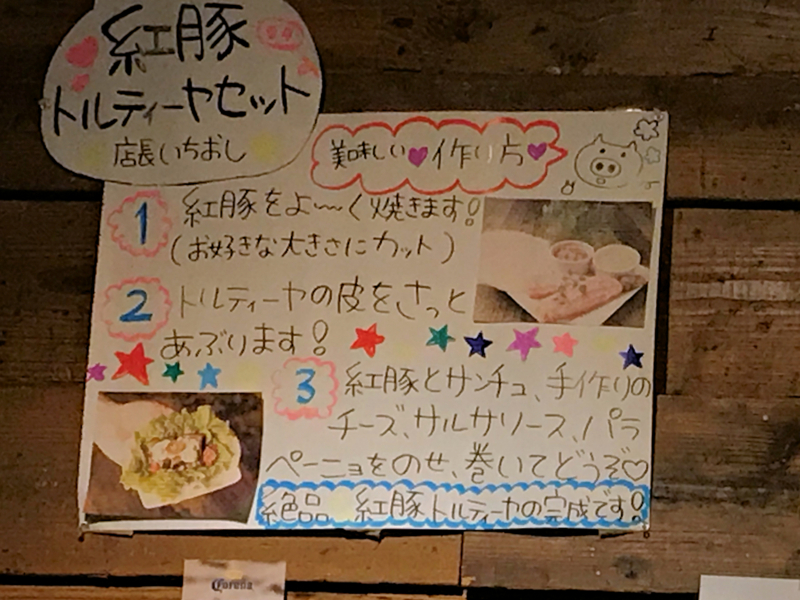 紅豚
トルティーヤセット
店長いちおし
美味しい♥作り方♥
1 紅豚をよ〜く焼きます!
(お好きな大きさにカット)
2 トルティーヤの皮をさっと
あぶります!
3 紅豚とサンチュ、手作りの
チーズ、サルサソース、ハラ
ペーニョをのせ、巻いてどうぞ♡
絶品 紅豚トルティーヤの完成です!
Corona